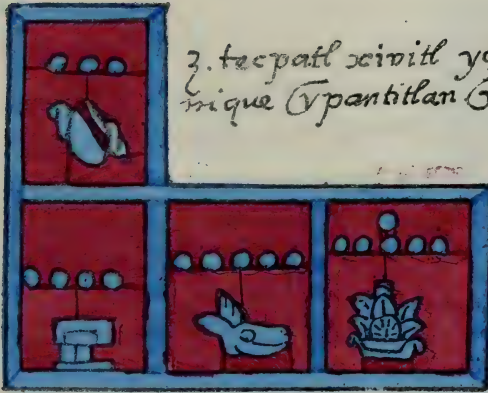 3. tecpatl xivitl y
nique Gypantitlan G